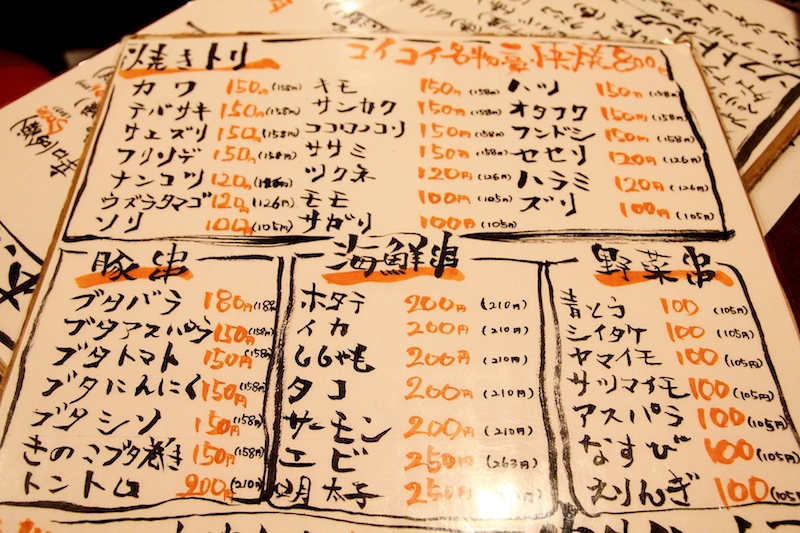 焼きトリ
コイコイ名物豪快焼800円
カワ 150円(158円)
テバサキ 150円(158円)
サエズリ 150円(158円)
フリソデ 150円(158円)
ナンコツ 120円(126円)
ウズラタマゴ 120円(126円)
ソリ 100円(105円)
キモ 150円(158円)
サンカク 150円(158円)
ココロノコリ 150円(158円)
ササミ 150円(158円)
ツクネ 120円(126円)
モモ 100円(105円)
サガリ 100円(105円)
ハツ 150円(158円)
オタフク 150円(158円)
フンドシ 150円(158円)
セセリ 120円(126円)
ハラミ 120円(126円)
ズリ 100円(105円)
豚串
ブタバラ 180円(189
ブタアスパラ 150円(158円)
ブタトマト 150円(158円)
ブタにんにく 150円(158円)
ブタシソ 150円(158円)
きのこブタ巻き 150円(158円)
トントロ 200円(210円)
海鮮串
ホタテ 200円(210円)
イカ 200円(210円)
ししゃも 200円(210円)
タコ 200円(210円)
サーモン 200円(210円)
エビ 250円(263円)
明太子 250円(263円)
野菜串
青とう 100(105円)
シイタケ 100(105円)
ヤマイモ 100(105円)
サツマイモ 100(105円)
アスパラ 100(105円)
なすび 100(105円)
えりんぎ 100(105円)